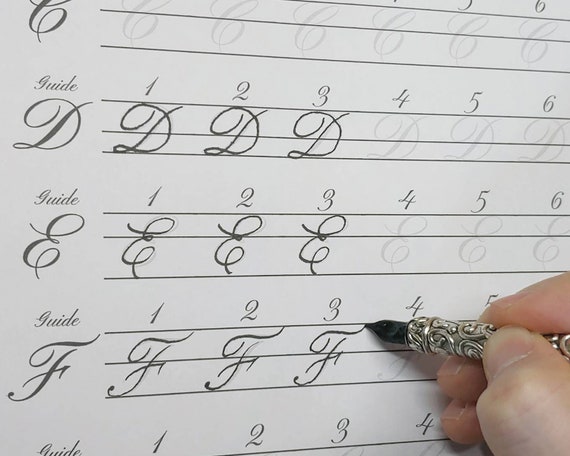 6
C C C C C C C
Guide 1 2 3 4 5 6
D D D D D D D
Guide 1 2 3 4 5 6
E E E E E E E
Guide 1 2 3 4 5
F F F F F
Guide 1 2 3 4